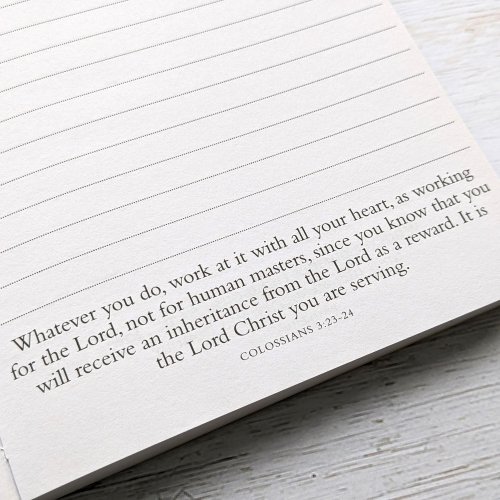 Whatever you do, work at it with all your heart, as working
for the Lord, not for human masters, since you know that you
will receive an inheritance from the Lord as a reward. It is
the Lord Christ you are serving.
COLOSSIANS 3:23-24